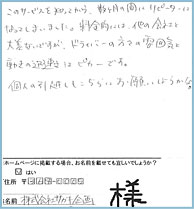 このサービスを知ってから、数ヶ月の間にリピーターに
なってしまいました。料金的には、他の会社と
大差ないですが、ドライバーの方々の雰囲気と
動きの
個人の引越しもこちらにお願いしようかな。
ホームページに掲載する場合、お名前を載せても宜しいでしょうか?
はい
ご住所 〒
お名前 株式会社 様